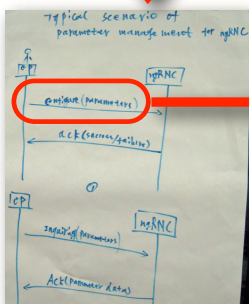 Typical scenario of
parameter management for ngRNC
CP
ngRNC
configure (parameters)
ack (success/failure)
①
CP
ngRNC
Inquiring (Parameters)
Ack (Parameter data)